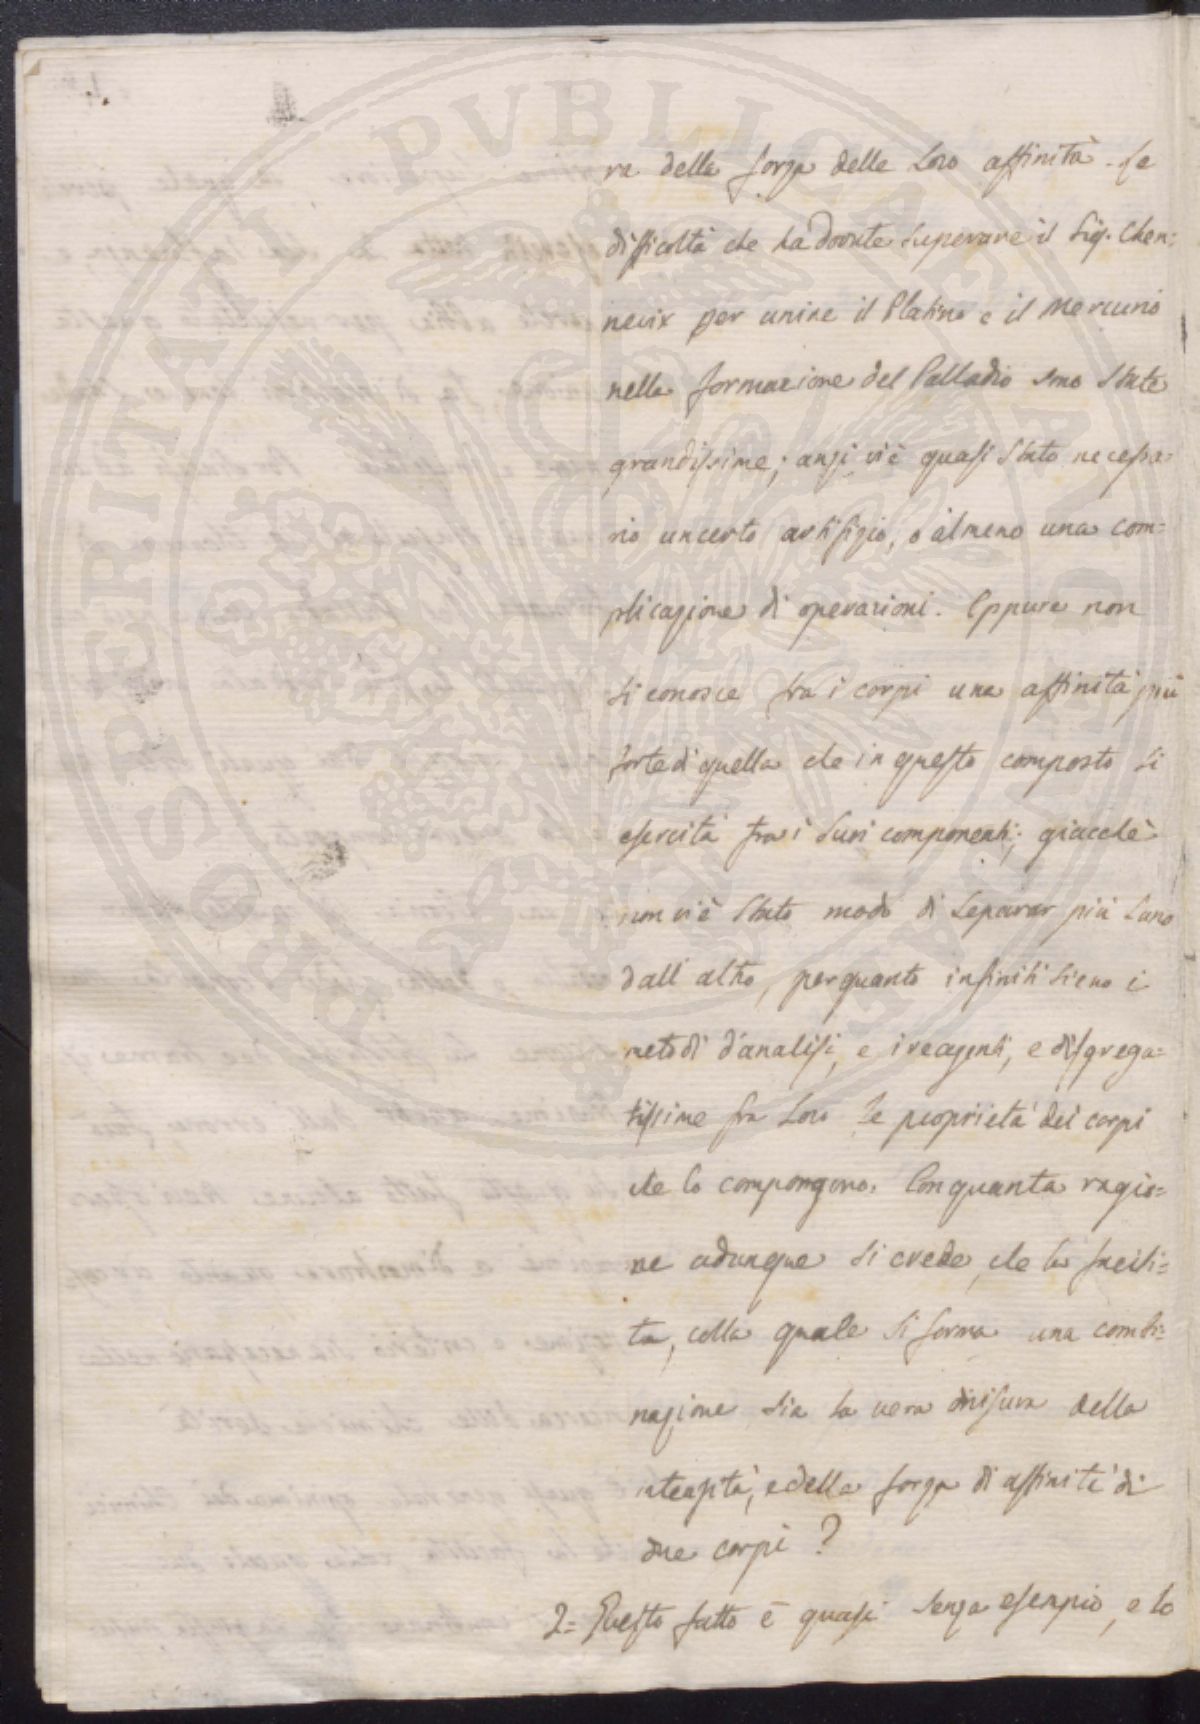 ra della forza delle Loro affinità. Le
difficoltà che ha dovute superare il Sig. Chen=
nevix per unire il Platino e il Mercurio
nella formazione del Palladio sono State
grandissime; anzi vi è quasi Stato necessa=
rio un certo artifizio, o almeno una com=
plicazione di operazioni. Eppure non
si conosce fra i corpi una affinità più
forte di quella che in questo composto si
esercita fra i suoi componenti; giacchè
non vi è Stato modo di separar più l'uno
dall'altro, per quanto infiniti sieno i
metodi d'analisi, e i reagenti, e disgrega=
tissime fra Loro le proprietà dei corpi
che lo compongono. Con quanta ragio=
ne adunque si crede, che la facili=
tà, colla quale si forma una combi=
nazione sia la vera misura della
intensità, e della forza di affinità di
due corpi?
2= Questo fatto è quasi senza esempio, e lo
PROSPERITATI PVBLICAE